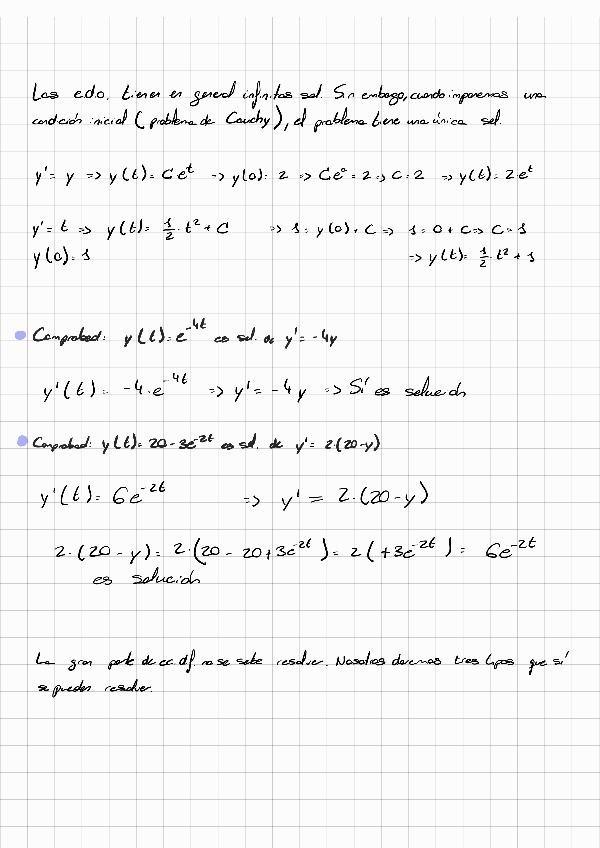 Las e.d.o. tienen en general infinitas sol. Sin embargo, cuando imponemos una
condición inicial (problema de Cauchy), el problema tiene una única sol.
y' = y => y(t) = Ce^t -> y(0) = 2 => Ce^0 = 2 => C = 2 => y(t) = 2e^t
y' = t => y(t) = 1/2 · t^2 + C => 1 = y(0) + C => 1 = 0 + C => C = 1
y(0) = 1 => y(t) = 1/2 · t^2 + 1
Comprobad: y(t) = e^-4t es sol. de y' = -4y
y'(t) = -4·e^-4t => y' = -4y => Sí es solución
Comprobad: y(t) = 20 - 3e^-2t es sol. de y' = 2·(20-y)
y'(t) = 6e^-2t => y' = 2·(20-y)
2·(20-y) = 2·(20 - 20 + 3e^-2t) = 2(+3e^-2t) = 6e^-2t
es solución
La gran parte de ec. dif. no se sabe resolver. Nosotros daremos tres tipos que sí
se pueden resolver.